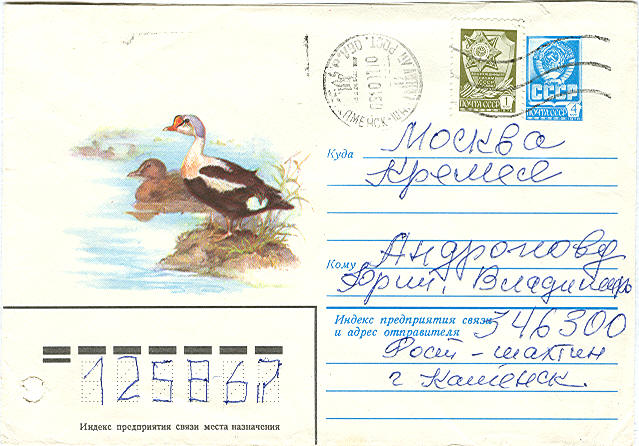 ПОЧТА СССР 1
СССР
ПОЧТА СССР 4
Куда Москва
Кремел
Кому Андропову
Юрий. Владимир
Индекс предприятия связи
и адрес отправителя 346300
Рост - шахтин
г Каменск.
125867
Индекс предприятия связи места назначения